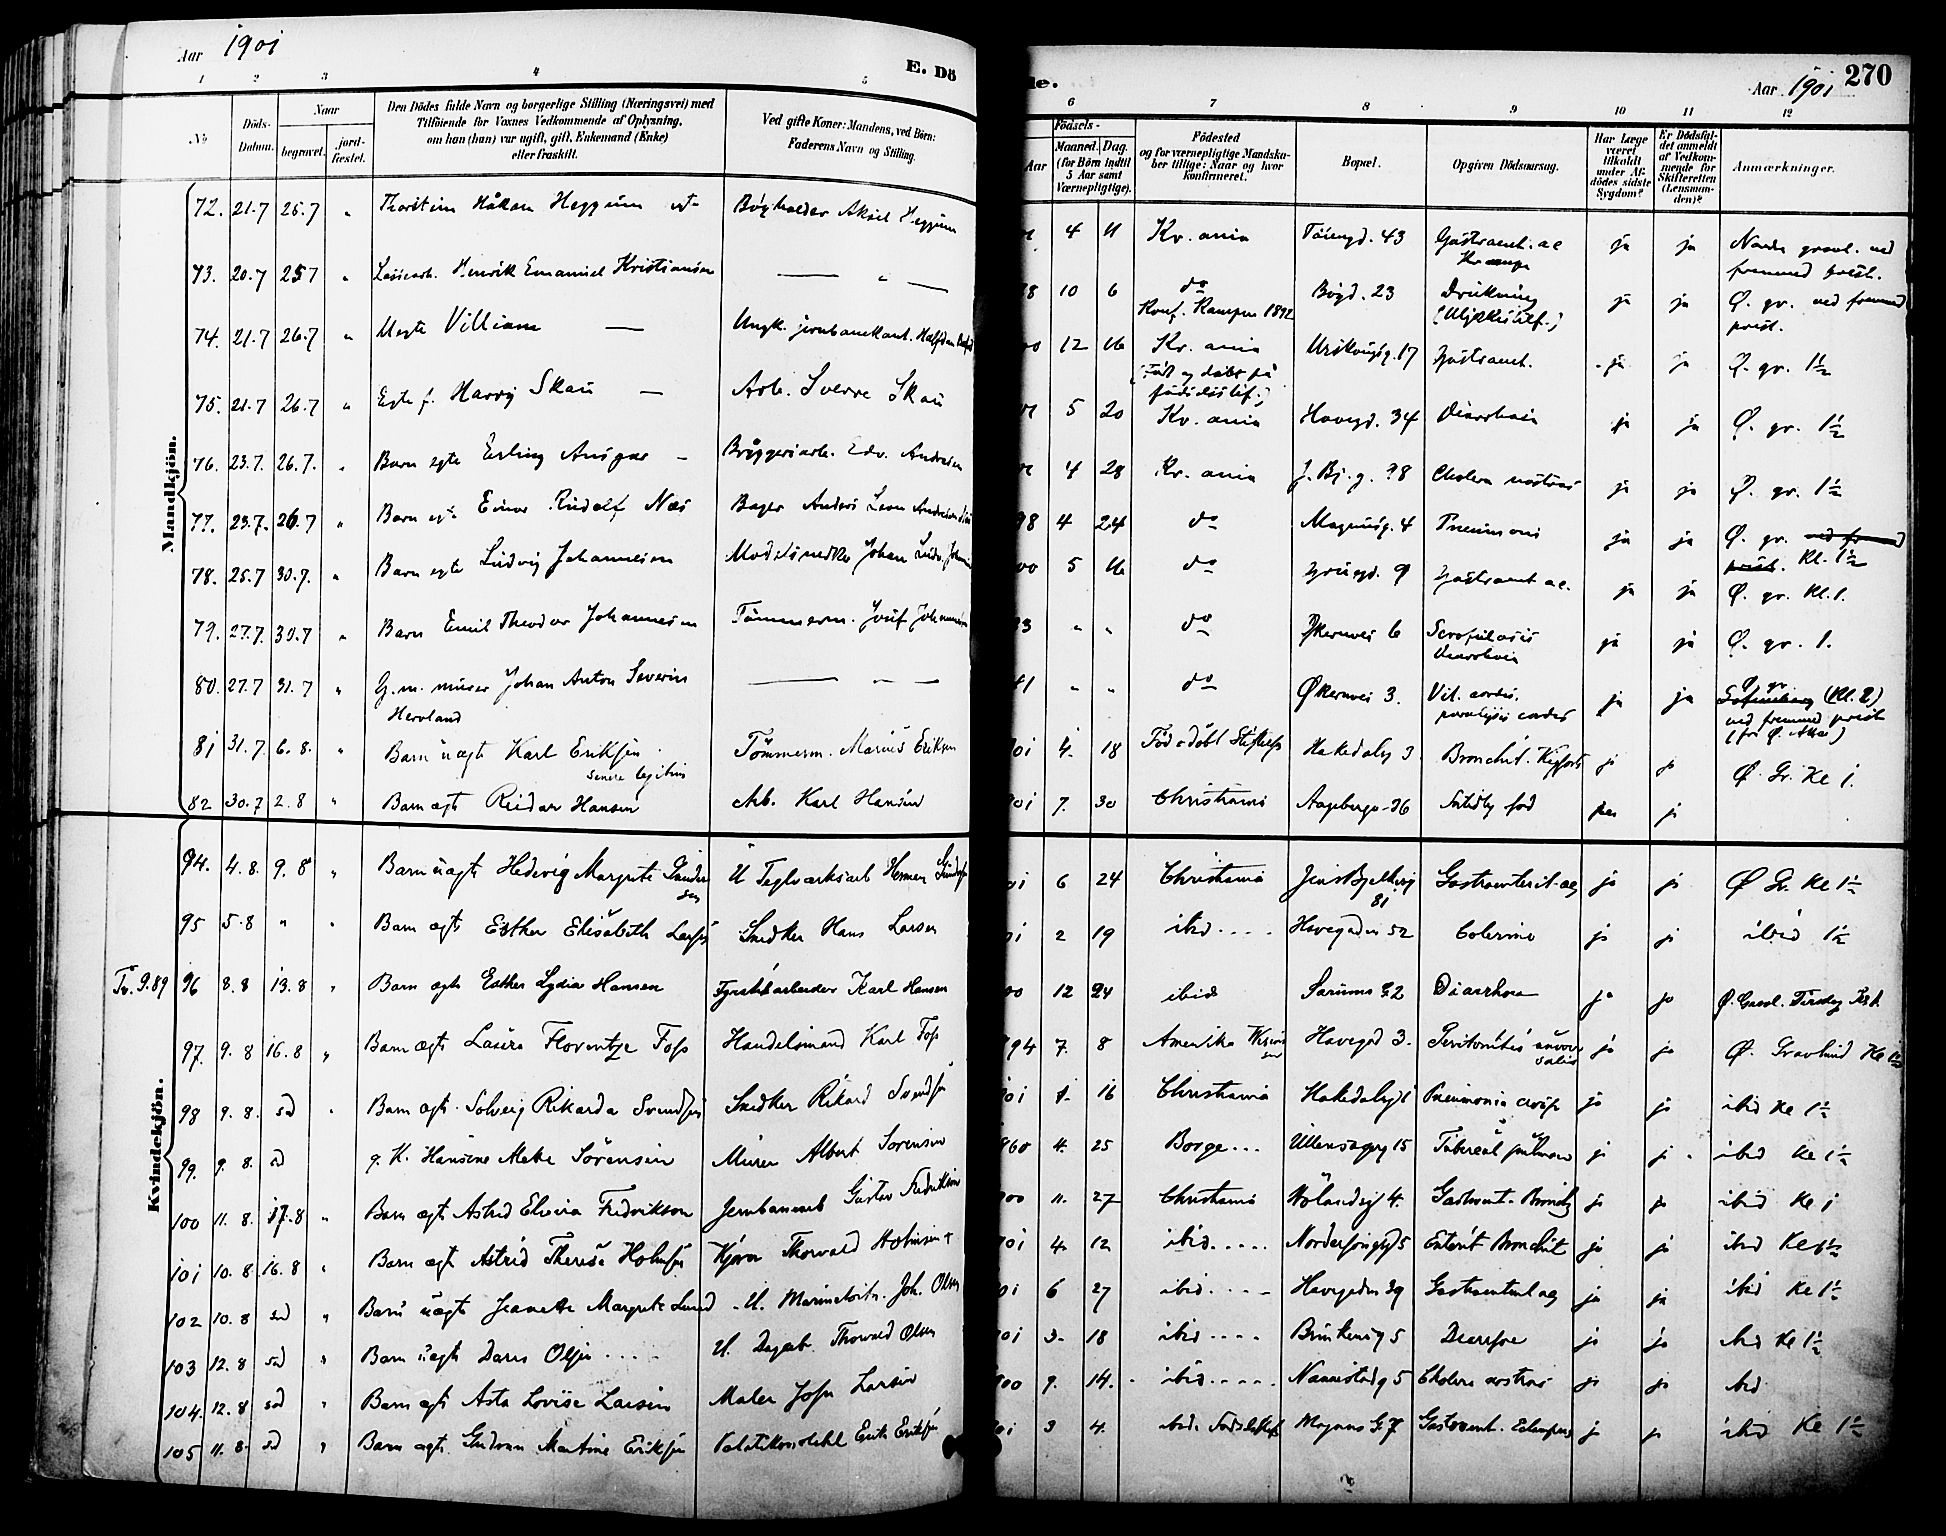 Aar 1901
E. Dö
de.
Aar 1901
270
1 2 3 4 5 6 7 8 9 10 11 12
No
Döds-Datum.
Naar
begravet.
jord-fæstet.
Den Dödes fulde Navn og borgerlige Stilling (Næringsvei) med
Tilföiende for Voxnes Vedkommende af Oplysning,
om han (hun) var ugift, gift, Enkemand (Enke)
eller fraskilt.
Ved gifte Koner: Mandens, ved Börn:
Faderens Navn og Stilling.
Födsels-
Aar
Maaned. Dag.
(for Börn indtil
5 Aar samt
Værnepligtige).
Födested
og for værnepligtige Mandska-
ber tillige: Naar og hvor
konfirmeret.
Bopæl.
Opgiven Dödsaarsag.
Har Læge
været
tilkaldt
under Af-
dödes sidste
Sygdom?
Er Dödsfal-
det anmeldt
af Vedkom-
mende for
Skifteretten
(Lensman-
den)?
Anmærkninger.
Mandkjön.
72. 21.7 25.7 " Thorstein Håkon Heggum Bogholder Aksel Heggum 4 11 Kr.ania Töiengd. 43 Gastroent. ac ja ja Nordre gravl. ved
fremmed prest.
73. 20.7 25.7 " Henrik Emanuel Kristiansen — " — 8 10 6 do Bögd. 23 Drukning ja ja Ø. gr. ved fremmed
Konf. Kampen 1892 (Ulykkestilf.) prest.
74. 21.7 26.7 " Uegte Villiam — Ungk. jernbanekont. Halfdan 00 12 16 Kr.ania Urskougsg. 17 Gastroent. ja ja Ø. gr. 1½
(Föd og döbt på
födselsstif.)
75. 21.7 26.7 " Egte f. Harry Skau — Arb. Sverre Skau 5 20 Kr.ania Havegd. 34 Diarrhoia ja ja Ø. gr. 1½
76. 23.7. 26.7. " Barn egte Erling Ansgar - Bryggeriarb. Edv. Andresen 4 28 Kr.ania J. Bj. g. 78 Cholera nostras ja ja Ø. gr. 1½
77. 23.7. 26.7 " Barn egte Einar Rudolf Næs Bager Anders 98 4 24 do Magnusg. 4 Pneumoni ja ja Ø. gr. ved fremmed
prest. Kl. 1½
78. 25.7 30.7. " Barn egte Ludvig Johannesen Modelsnedker Johan Ludv. 00 5 16 do Grüngd. 9 Gastroent ac. ja ja Ø. gr. Kl. 1.
79. 27.7. 30.7 " Barn Emil Theodor Johannesen Tömmerm. Josef Johannesen 93 " " do Økernvei 6 Scrofulosis ja ja Ø. gr. 1.
Diarrhoia
80. 27.7 31.7 " G.m. murer Johan Anton Severin — " — 41 " " do Økernvei 3. Vit. cordis. ja ja Ø. gr. (Kl. 2)
Hervland paralysis cordis ved fremmed prest
81 31.7. 6.8. " Barn uægt Karl Eriksen Tömmerm. Marius Eriksen 01 4. 18 Föd o döbt Stiftelse Hakedalsg 3 Bronchit. ja ja Ø. Gr. Kl 1.
senere legitim
82 30.7 2.8 " Barn ægt Reidar Hansen Arb. Karl Hansen 01 7. 30 Christiania Aagebergv. 36 Födt ja
Kvindekjön.
94. 4.8. 9.8 " Barn uægt Hedevig Margrete Gundersen U Teglværksarb Herman 01 6 24 Christiania Jens Bjelkesg Gastroenterit. ac ja ja Ø Gr. Kl 1½
81
95 5.8 " " Barn ægt Esther Elisabeth Larsen Snedker Hans Larsen 01 2 19 ibid.... Havegaden 52 Colerine ja ja ibid 1½
Tr. 9.89 96 8.8 13.8 " Barn ægt Esther Lydia Hansen Fyrstikarbeider Karl Hansen 00 12 24 ibid Sörums G 2 Diarrhoe ja ja Ø. Gravl. Tirsdag
97. 9.8 16.8 " Barn ægt Laura Florentze Foss Handelsmand Karl Foss 894 7. 8 Amerika Havegad 3. Peritonitis univer ja ja Ø. Gravlund Kl 1½
salis
98 9.8. sd " Barn ægt Solveig Rikarda Svendsen Snedker Rikard Svendsen 01 1. 16 Christiania Hakedalsg 1 Pneumonia ja ja ibid Kl 1½
99. 9.8. sd g. K. Hansine Mette Sörensen Murer Albert Sörensen 860 4. 25 Borge... Ullensagerg 15 Tubercul pulmon ja ja ibid Kl 1½
100 11.8. 17.8 " Barn ægt Astrid Elvira Fredriksen Jernbanearb Gustav Fredriksen 900 11. 27 Christiania Hölandsg 4. Gastroent. Bronchit ja ja ibid Kl 1
101 10.8 16.8 " Barn ægt Astrid Therese Holmsen Kjörer Thorvald Holmsen 01 4. 12 ibid..... 5 Enterit Bronchit ja ja ibid Kl 1½
102 10.8 sd " Barn uægt Jeanette Margrete Lund U. Joh. Olsen 01 6 27 ibid.... Havegaden 39 Gastroenterit ac ja ja ibid Kl 1½
103 12.8 sd " Barn uægt Dares Olsen.... U. Dagarb. Thorvald Olsen 01 3. 18 ibid.... 5 Diarrhoe ja ja ibid Kl 1½
104. 12.8 sd " Barn ægt Asta Lovise Larsen Maler Larsen 900 9. 14. ibid..... Nannestadg 5 Cholera nostras ja ja ibid
105 11.8. sd " Barn ægt. Gudrun Martine Eriksen Erik Eriksen 01 3 4. ibid. Födselsstift Magnus G 7 Gastroent. Eclampsia ja ja ibid Kl 1½